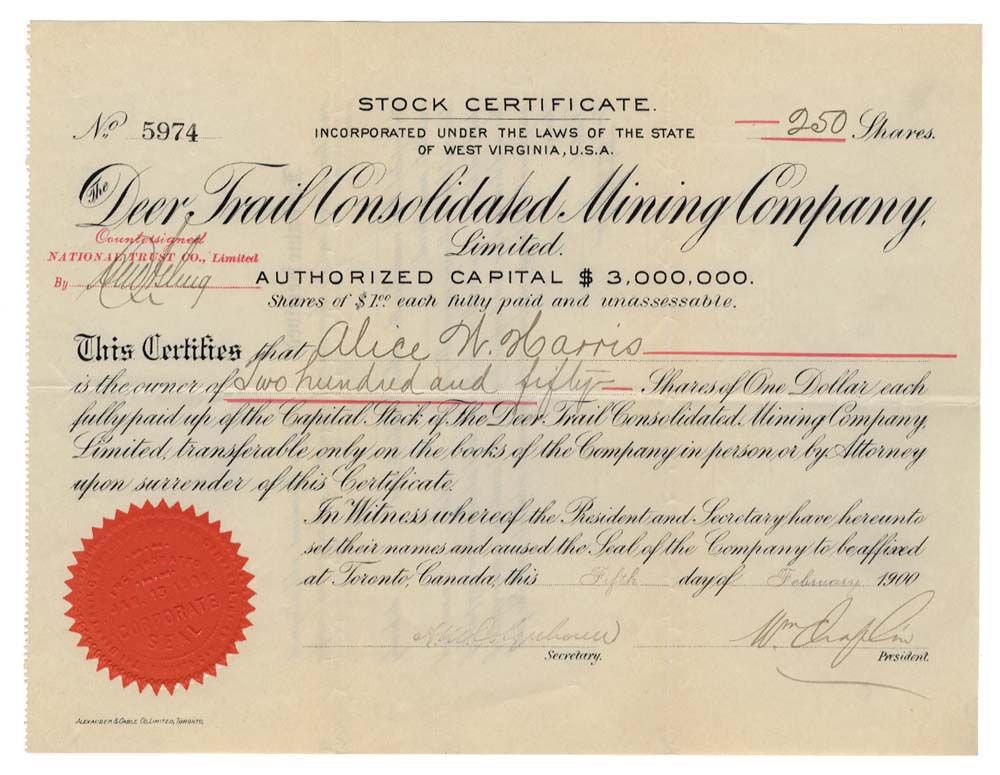 STOCK CERTIFICATE.
No 5974
INCORPORATED UNDER THE LAWS OF THE STATE
OF WEST VIRGINIA, U.S.A.
250 Shares.
The Deer Trail Consolidated Mining Company,
Limited.
Countersigned
NATIONAL TRUST CO., Limited
By
AUTHORIZED CAPITAL $ 3,000,000.
Shares of $1.00 each fully paid and unassessable.
This Certifies that Alice W. Harris
is the owner of Two hundred and fifty Shares of One Dollar each
fully paid up of the Capital Stock of The Deer Trail Consolidated Mining Company,
Limited, transferable only on the books of the Company in person or by Attorney
upon surrender of this Certificate.
In Witness whereof the President and Secretary have hereunto
set their names and caused the Seal of the Company to be affixed
at Toronto, Canada, this Fifth day of February 1900
Wm Chaplin
Secretary.
President.
SEAL
ALEXANDER & CABLE CO. LIMITED, TORONTO,